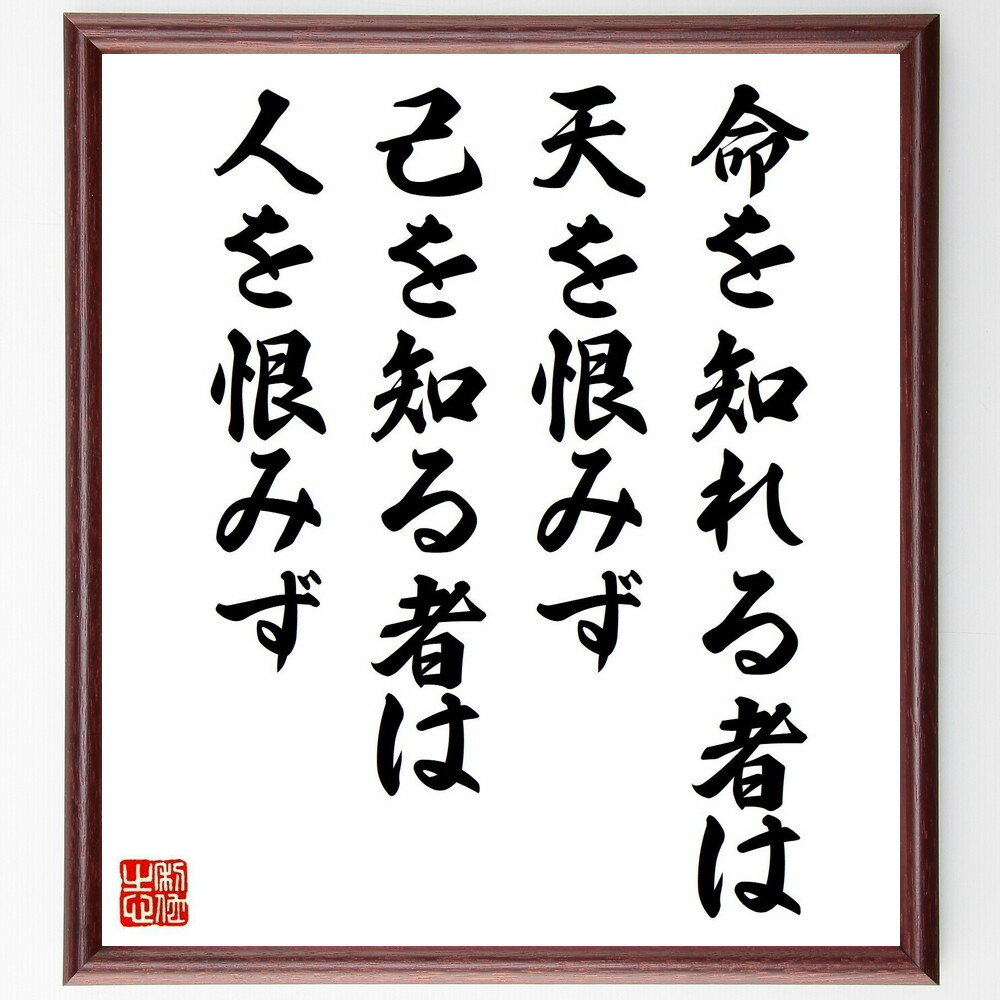 命を知れる者は
天を恨みず
己を知る者は
人を恨みず